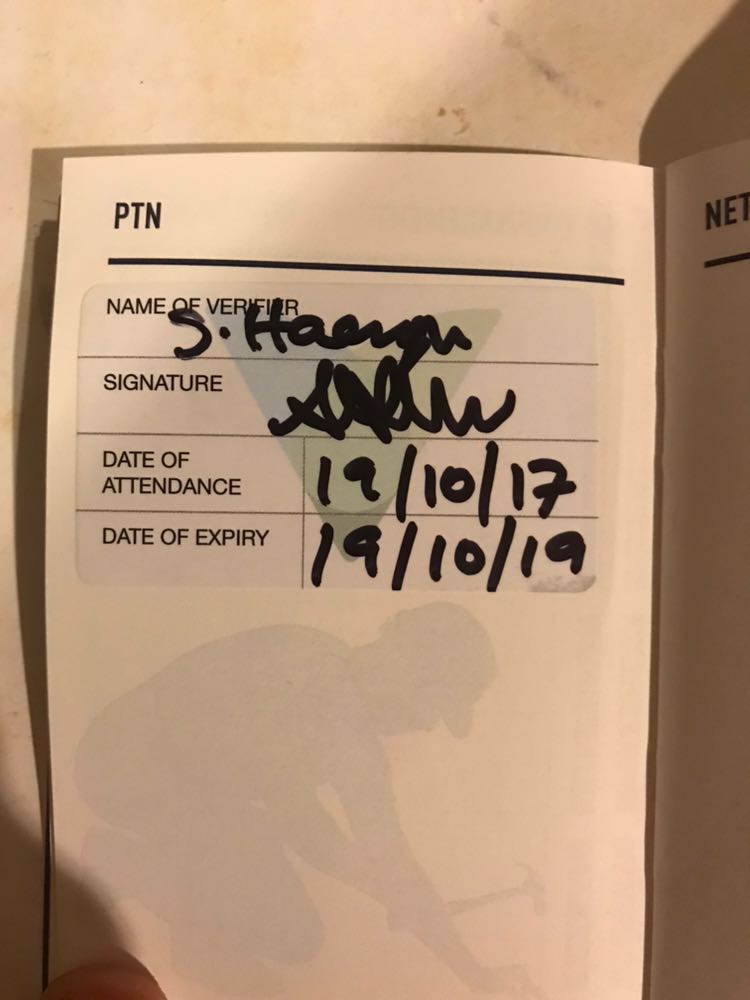 PTN
NET
NAME OF VERIFIER
S.
SIGNATURE
DATE OF
ATTENDANCE
19/10/17
DATE OF EXPIRY
19/10/19